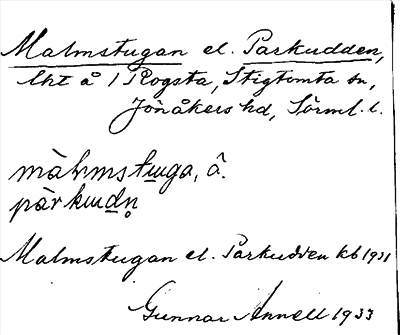 Malmstugan el. Parkudden,
lht å 1 Rogsta, Stigtomta sn,
Jönåkers hd, Sörml. l.
màlmstuga, å.
pàrkudn̥
Malmstugan el. Parkudden kb 1931
Gunnar Annell 1933